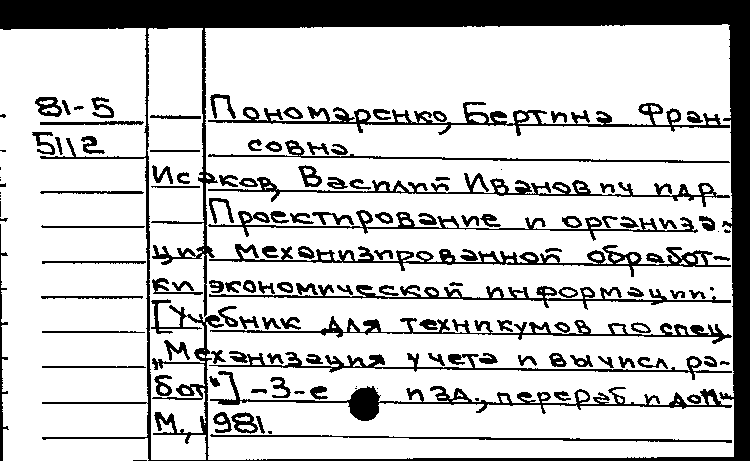 81-5
5112
Пономаренко, Бертина Фран-
совна.
Исаков, Василий Иванович и др.
Проектирование и организа-
ция механизированной обработ-
ки экономической информации:
[Учебник для техникумов по спец.
„Механизация учета и вычисл. ра-
бот"] -3-е изд., перераб. и доп.-
М., 1981.